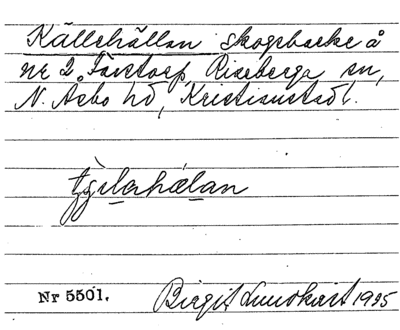 Källehällan skogsbacke å
nr 2 Färetorp Riseberga sn,
N. Åsbo hd, Kristianstad l.
Nr 5501.
Birgit Lundkvist 1935